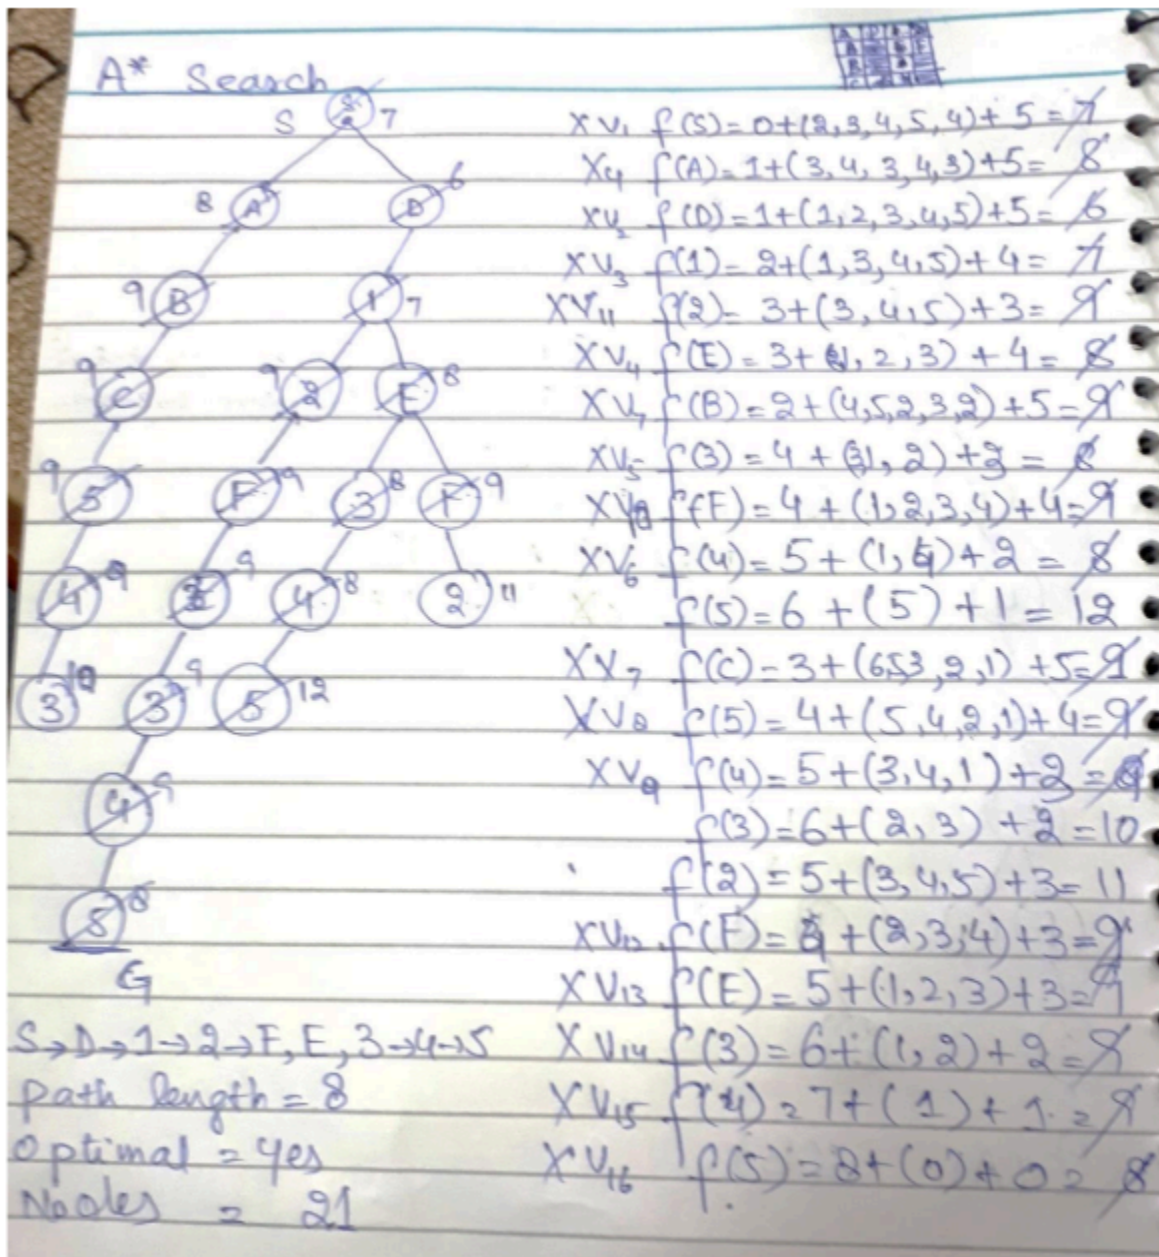 A* Search
S 7
8 A D 6
9 B 1 7
9 C 9 2 E 8
9 5 F 9 3 8 F 9
4 9 9 4 8 2 11
3 10 3 9 5 12
4 9
5 8
G
S→D→1→2→F, E, 3→4→5
Path length = 8
Optimal = Yes
Nodes = 21
XV1 f(S)=0+(2,3,4,5,4)+5=7
X4 f(A)=1+(3,4,3,4,3)+5=8
XV2 f(D)=1+(1,2,3,4,5)+5=6
XV3 f(1)=2+(1,3,4,5)+4=7
XV11 f(2)=3+(3,4,5)+3=9
XV4 f(E)=3+(1,2,3)+4=8
XV7 f(B)=2+(4,5,2,3,2)+5=9
XV5 f(3)=4+(1,2)+3=8
f(F)=4+(1,2,3,4)+4=9
XV6 f(4)=5+(1,4)+2=8
f(5)=6+(5)+1=12
XV7 f(C)=3+(653,2,1)+5=9
XV8 f(5)=4+(5,4,2,1)+4=9
XV9 f(4)=5+(3,4,1)+3=9
f(3)=6+(2,3)+2=10
f(2)=5+(3,4,5)+3=11
XV12 f(F)=4+(2,3,4)+3=9
XV13 f(E)=5+(1,2,3)+3=9
XV14 f(3)=6+(1,2)+2=9
XV15 f(4)=7+(1)+1=9
XV16 f(5)=8+(0)+0=8